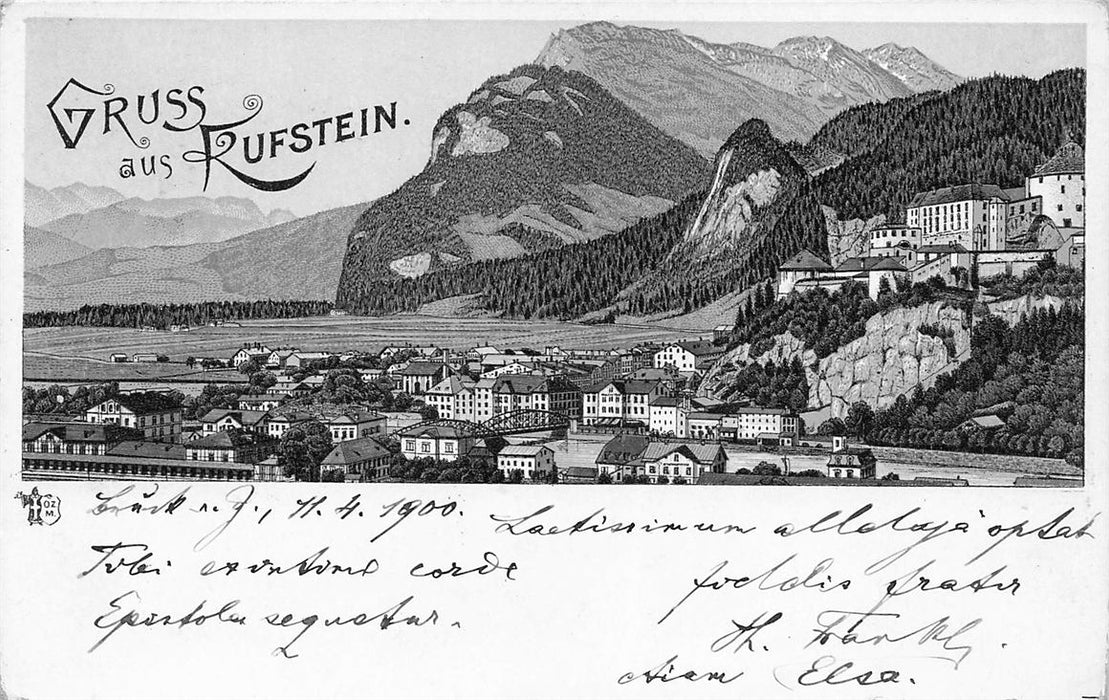 GRUSS
aus KUFSTEIN.
OZ
M.
Bruck a. Z., 11. 4. 1900.
Laetissimum alleluja optat
Tibi corde
fidelis frater
Epistola sequetur.
Th.
etiam Elsa.